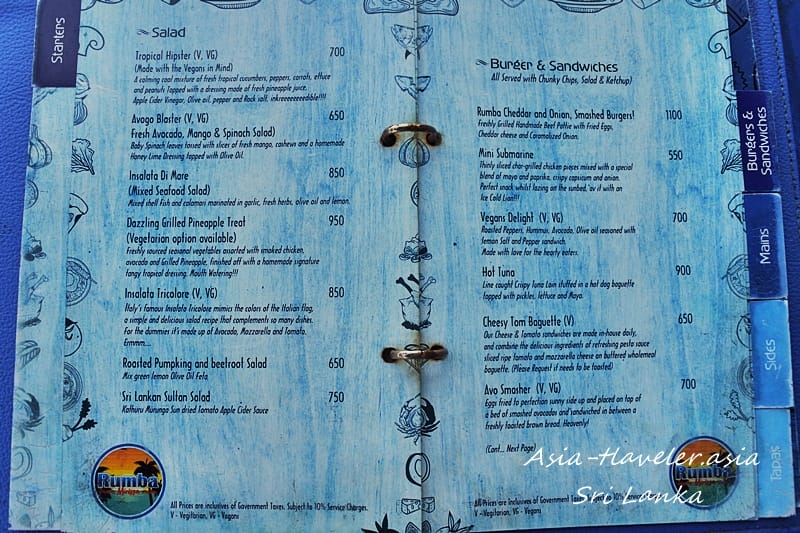 Starters
Salad
Tropical Hipster (V, VG) 700
(Made with the Vegans in Mind)
A calming cool mixture of fresh tropical cucumbers, peppers, carrots, ettuce
and peanuts topped with a dressing made of fresh pineapple juice,
Apple Cider Vinegar, Olive oil, pepper and Rock salt. inkreeeeeeedible!!!!
Avogo Blaster (V, VG) 650
Fresh Avocado, Mango & Spinach Salad)
Baby Spinach leaves tossed with slices of fresh mango, cashews and a homemade
Honey Lime Dressing topped with Olive Oil.
Insalata Di Mare 850
(Mixed Seafood Salad)
Mixed shell Fish and calamari marinated in garlic, fresh herbs, olive oil and lemon.
Dazzling Grilled Pineapple Treat 950
(Vegetarian option available)
Freshly sourced seasonal vegetables assorted with smoked chicken,
avocado and Grilled Pineapple, finished off with a homemade signature
tangy tropical dressing. Mouth Watering!!!
Insalata Tricolore (V, VG) 850
Italy's famous Insalata Tricolore mimics the colors of the Italian flag,
a simple and delicious salad recipe that complements so many dishes.
For the dummies it's made up of Avocado, Mozzarella and Tomato.
Ermmm....
Roasted Pumpking and beetroot Salad 650
Mix green lemon Olive Oil Feta
Sri Lankan Sultan Salad 750
Kathuru Murunga Sun dried Tomato Apple Cider Sauce
Rumba
Mirissa
All Prices are inclusives of Government Taxes. Subject to 10% Service Charges.
V - Vegitarian, VG - Vegans
Burger & Sandwiches
All Served with Chunky Chips, Salad & Ketchup)
Rumba Cheddar and Onion, Smashed Burgers! 1100
Freshly Grilled Handmade Beef Pattie with Fried Eggs,
Cheddar cheese and Caramalized Onion.
Mini Submarine 550
Thinly sliced char-grilled chicken pieces mixed with a special
blend of mayo and paprika, crispy capsicum and onion.
Perfect snack whilst lazing on the sunbed, 'av it with an
Ice Cold Lion!!!
Vegans Delight (V, VG) 700
Roasted Peppers, Hummus, Avocado, Olive oil seasoned with
Lemon Salt and Pepper sandwich.
Made with love for the hearty eaters.
Hot Tuna 900
Line caught Crispy tuna Loin stuffed in a hot dog baguette
topped with pickles, lettuce and Mayo.
Cheesy Tom Baguette (V) 650
Our Cheese & Tomato sandwiches are made in-house daily,
and combine the delicious ingredients of refreshing pesto sauce
sliced ripe tomato and mozzarella cheese on buttered wholemeal
baguette. (Please Request if needs to be toasted)
Avo Smasher (V, VG) 700
Eggs fried to perfection sunny side up and placed on top of
a bed of smashed avocados and sandwiched in between a
freshly toasted brown bread. Heavenly!
(Cont... Next Page)
Rumba
All Prices are inclusives of Government Taxes. Subject to 10% Service Charges.
V - Vegitarian, VG - Vegans
Burgers &
Sandwiches
Mains
Sides
Tapas
Asia-traveler.asia
Sri Lanka